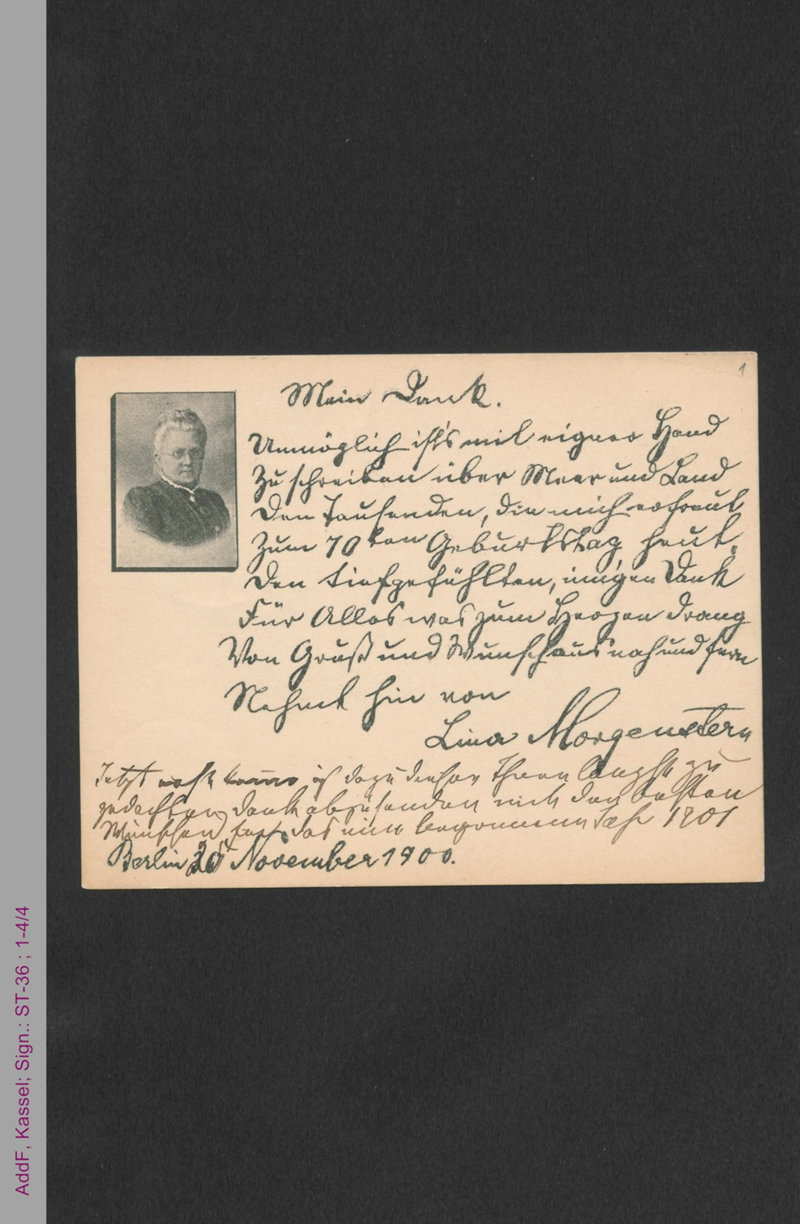 1
Mein Dank.
Unmöglich ist's mit eigner Hand
Zu schreiben über Meer und Land
Den Tausenden, die mich erfreut
Zum 70ten Geburtstag heut,
Den tiefgefühlten, innigen Dank
Für Alles was zum Herzen drang
Von Gruß und Wunsch aus nah und fern
Nehmt hin von
Lina Morgenstern
Jetzt erst komme ich dazu diesen Ihnen längst zu
gedachten Dank abzusenden mit den besten
Wünschen für das nun begonnene Jahr 1901
Berlin 25 November 1900.
AddF, Kassel; Sign.: ST-36 ; 1-4/4